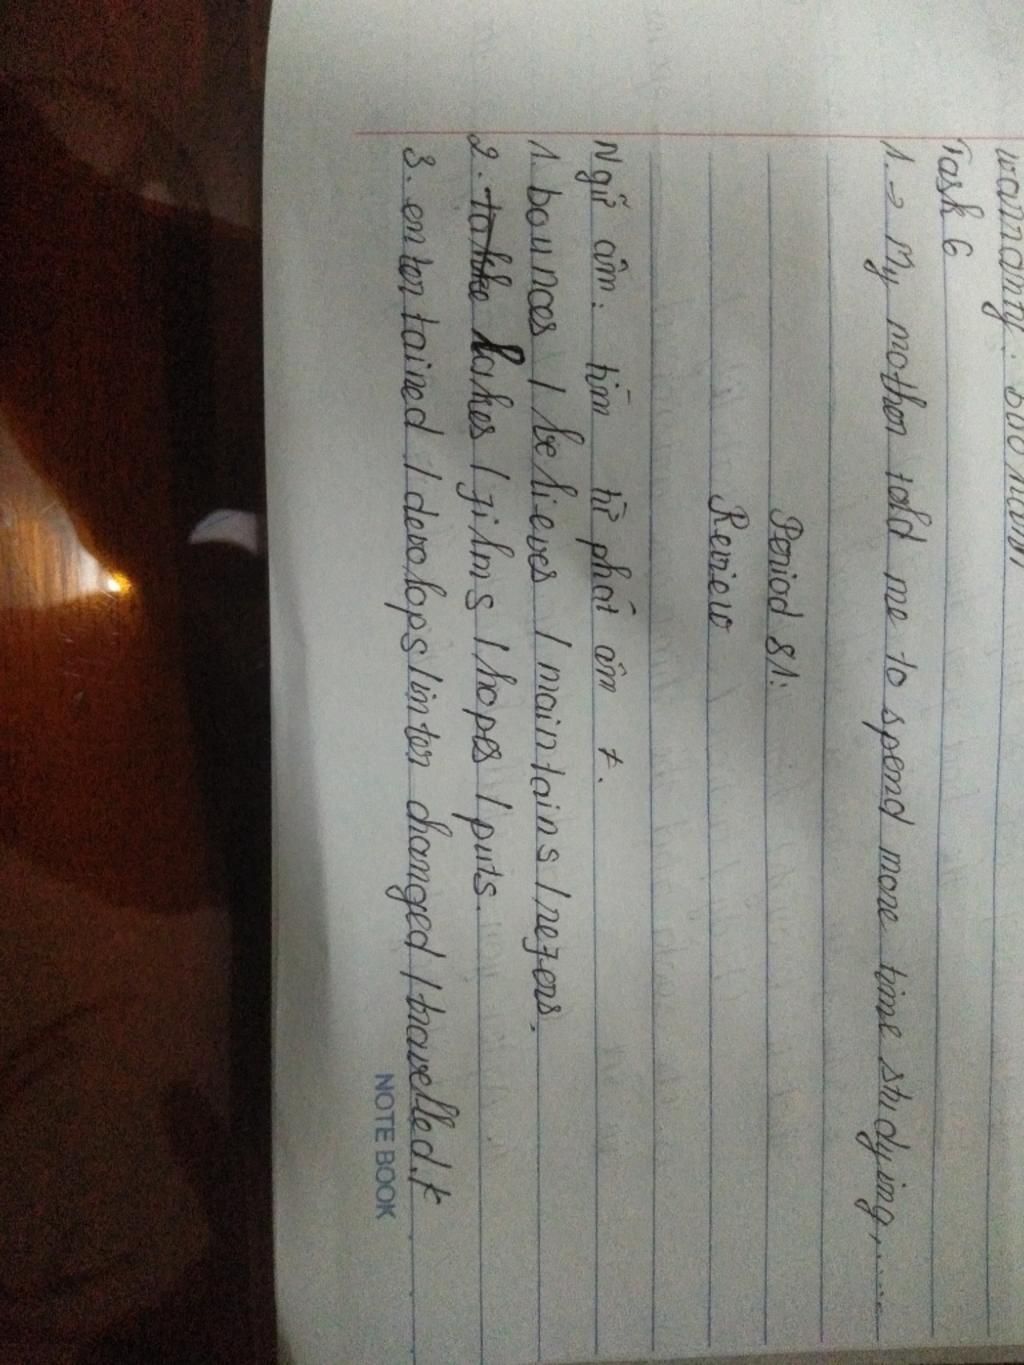 warranty:
Task 6
1. → My mother told me to spend more time studying,......
Period 81:
Review
Ngữ âm: tìm từ phát âm ≠.
1. bounces / believes / maintains / refers.
2. takes / films / hopes / puts.
3. entertained / develops / inter changed / travelled.
NOTE BOOK